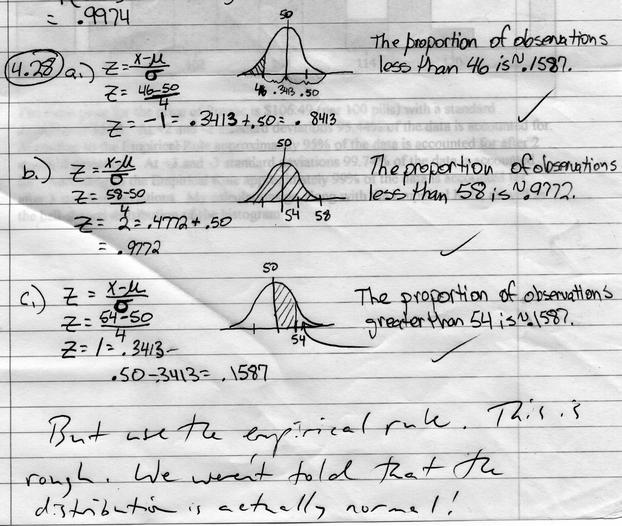 = .9974
50
4.28 a.) Z = x-μ/σ
The proportion of observations
less than 46 is ~.1587.
Z = 46-50/4
46 .3413 .50
Z = -1 = .3413 + .50 = .8413
50
b.) Z = x-μ/σ
The proportion of observations
less than 58 is ~.9772.
Z = 58-50/4
54 58
Z = 2 = .4772 + .50
= .9772
50
c.) Z = x-μ/σ
The proportion of observations
greater than 54 is ~.1587.
Z = 54-50/4
54
Z = 1 = .3413-
.50-.3413 = .1587
But use the empirical rule. This is
rough. We weren't told that the
distribution is actually normal!